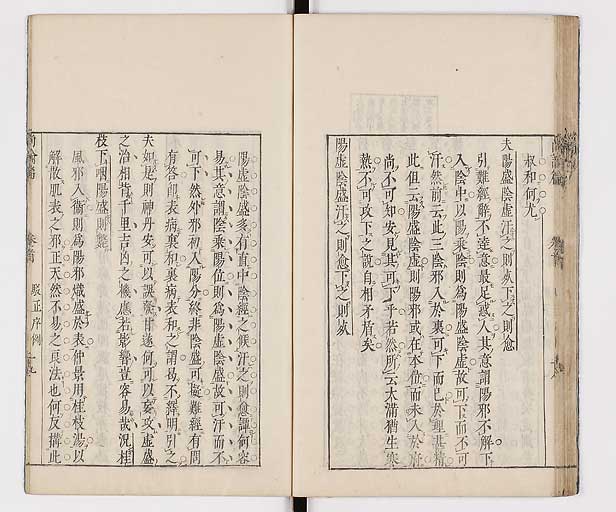 叔和何尤
夫陽盛陰虛汗之則死下之則愈
引難經辭不達意最足惑人其意謂陽邪不解下
入陰中以陽乘陰則爲陽盛陰虛故可下而不可
汗然前云此三陰邪入於裏可下而已於理甚精
此但云陽盛陰虛則陽邪或在本位而未入於府
尚不可知安見其可下乎若然所云太滿猶生寒
熱不可攻下之說自相矛楯矣
陽虛陰盛汗之則愈下之則死
陽虛陰盛多有直中陰經之候汗之則愈譚何容
易其意謂陰乘陽位則爲陽虛陰盛故可汗而不
可下然外邪初入陽分終非陰盛可擬難經有問
有答即表病裏和裏病表和之謂曷不繹明引之
夫如是則神丹安可以誤發甘遂何可以妄攻虛盛
之治相背千里吉凶之機應若影響豈容易哉況桂
枝下咽陽盛則斃
風邪入衞則爲陽邪熾盛於表仲景用桂枝湯以
解散肌表之邪正天然不易之良法也何反擠此
尚論篇
卷首
駁正序例